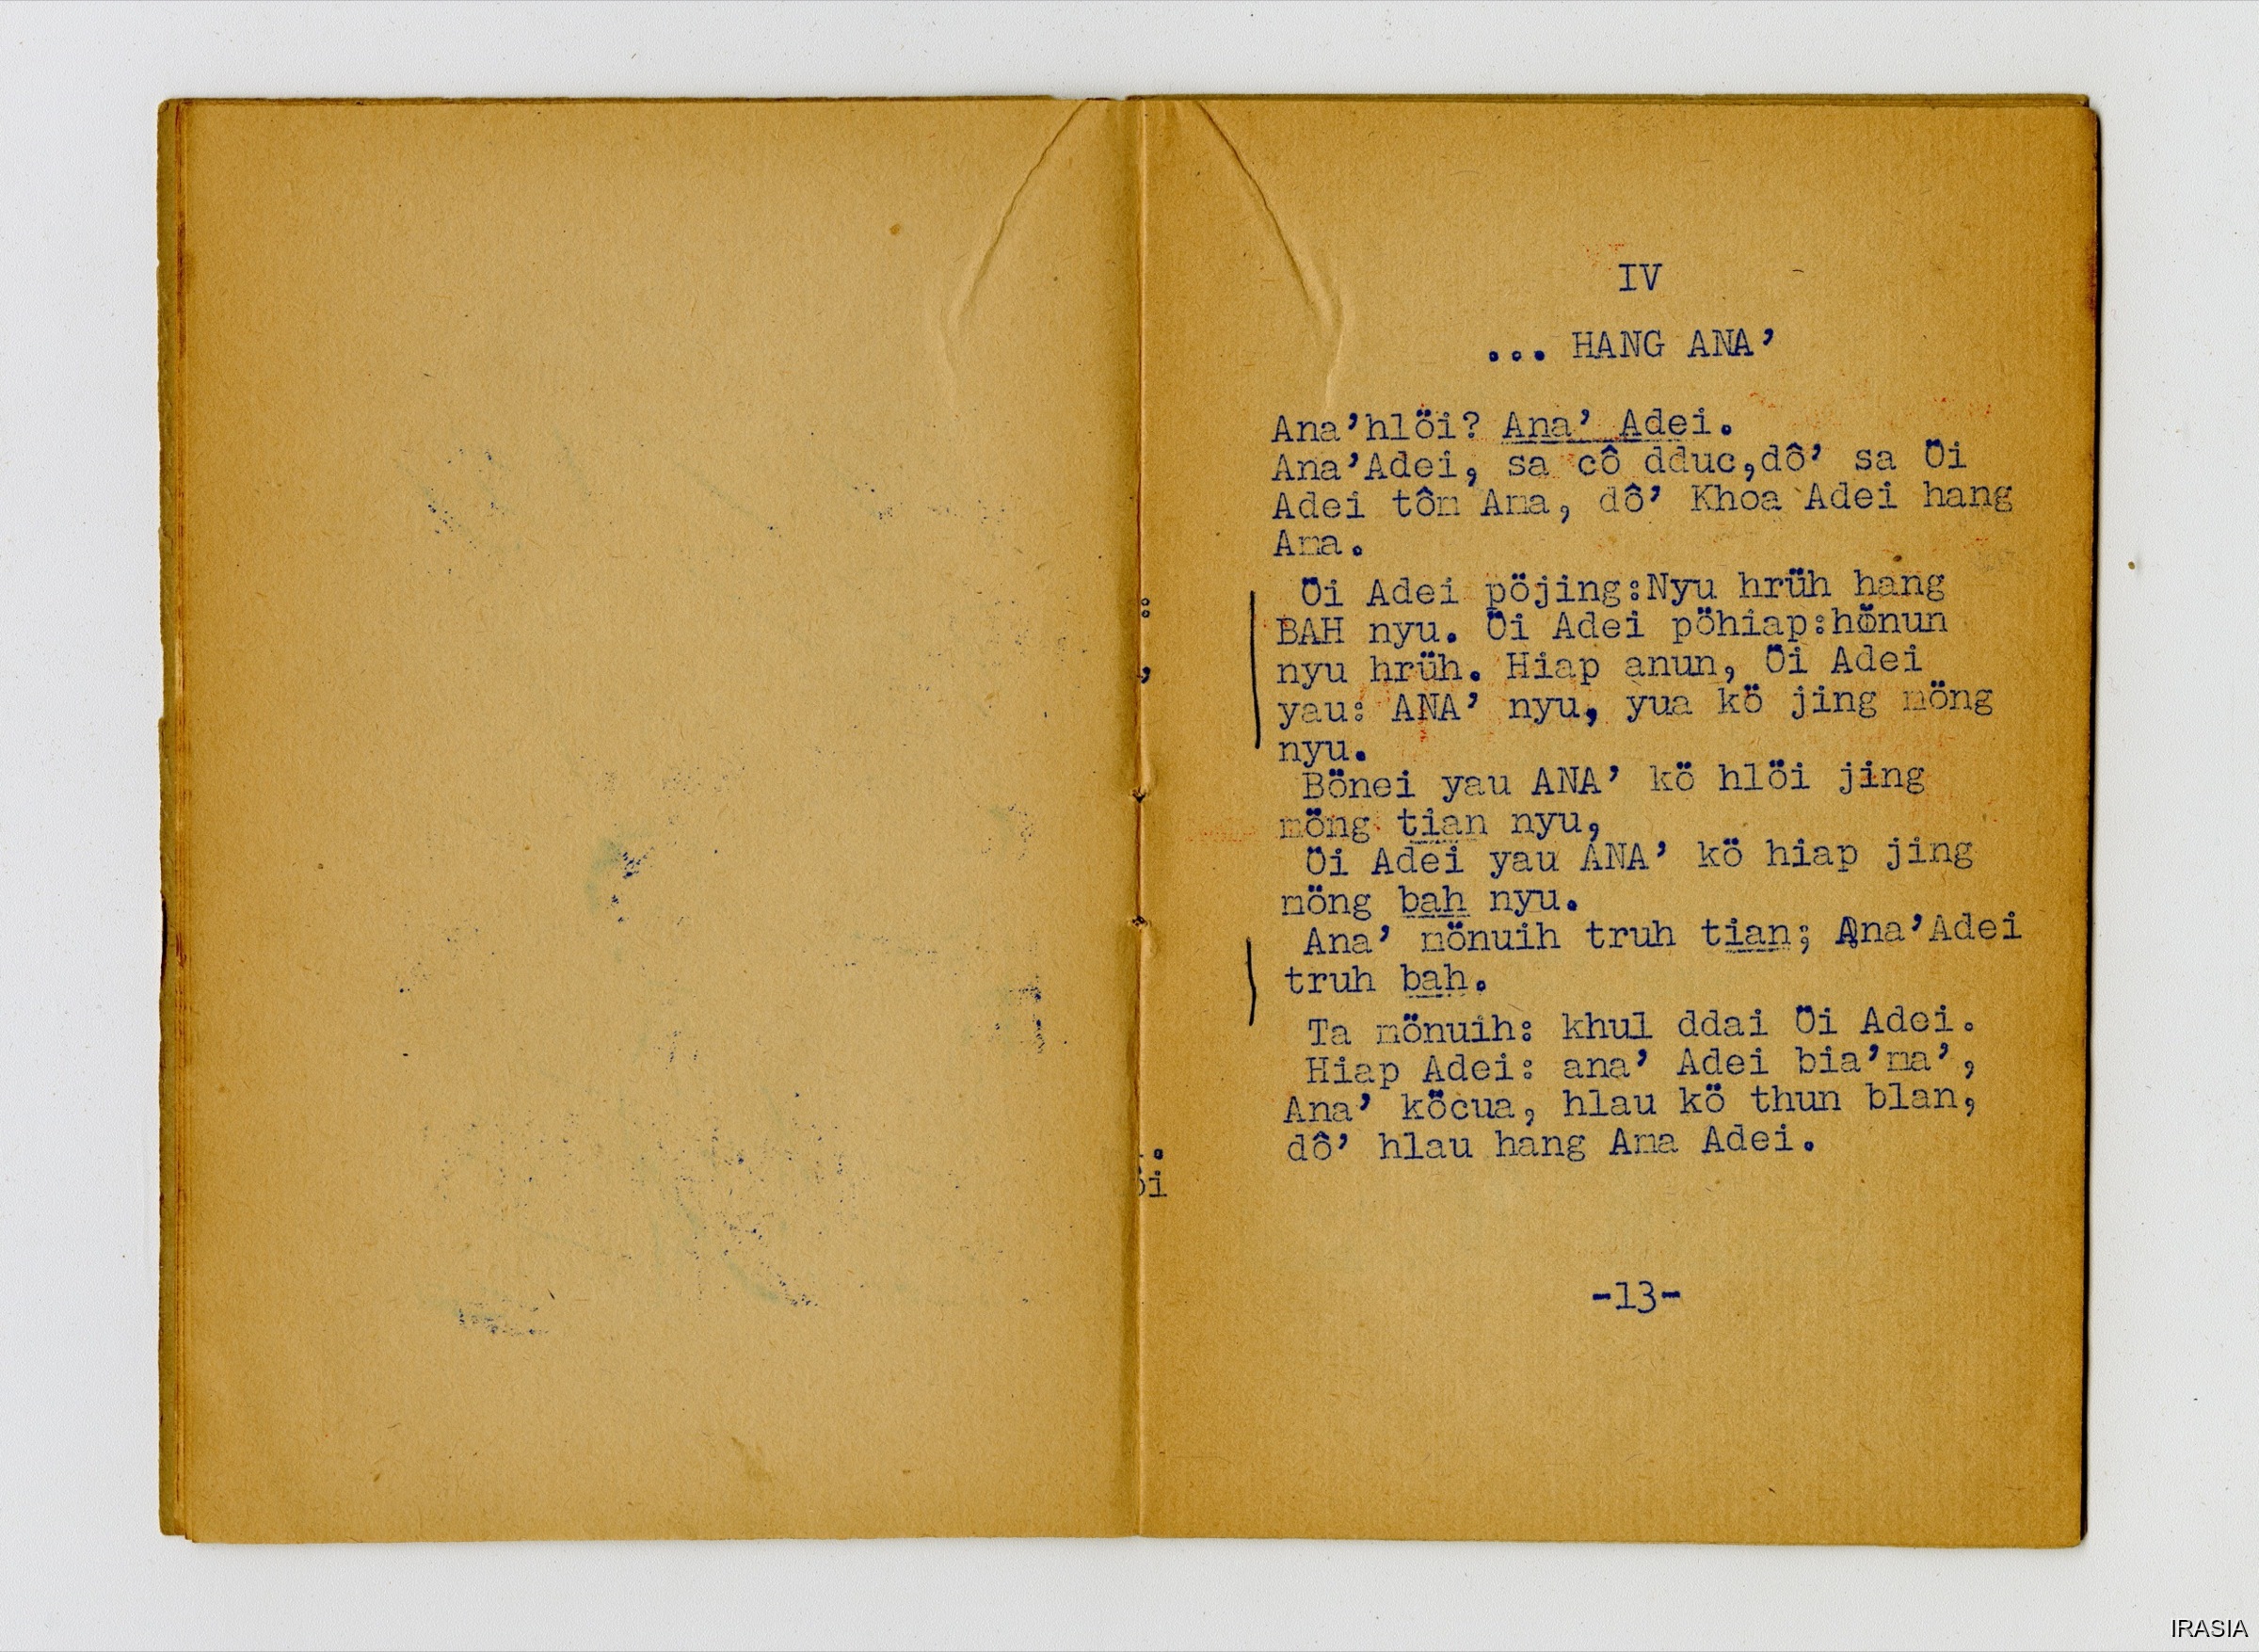 IV
... HANG ANA’
Ana’hlöi? Ana’ Adei.
Ana’Adei, sa cô dduc,dô’ sa Öi
Adei tôm Ama, dô’ Khoa Adei hang
Ama.
Öi Adei pöjing:Nyu hrüh hang
BAH nyu. Öi Adei pöhiap:hönun
nyu hrüh. Hiap anun, Öi Adei
yau: ANA’ nyu, yua kö jing möng
nyu.
Bönei yau ANA’ kö hlöi jing
möng tian nyu,
Öi Adei yau ANA’ kö hiap jing
möng bah nyu.
Ana’ mönuih truh tian; Ana’Adei
truh bah.
Ta mönuih: khul ddai Öi Adei.
Hiap Adei: ana’ Adei bia’ma’,
Ana’ köcua, hlau kö thun blan,
dô’ hlau hang Ama Adei.
-13-
:
,
.
öi
IRASIA